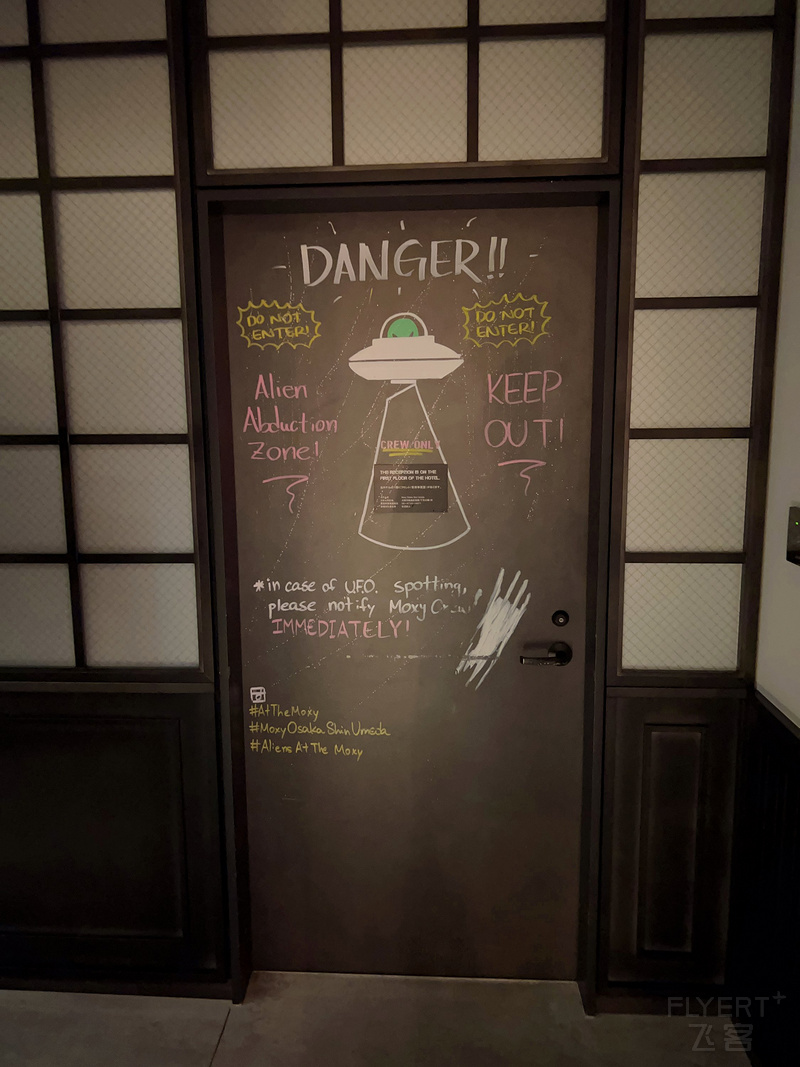 DANGER!!
DO NOT
ENTER!
DO NOT
ENTER!
Alien
Abduction
Zone!
KEEP
OUT!
CREW ONLY
THE RECEPTION IS ON THE
FIRST FLOOR OF THE HOTEL.
*in case of U.F.O. spotting,
please notify Moxy Crew
IMMEDIATELY!
#AtTheMoxy
#MoxyOsakaShinUmeda
#AliensAtThe Moxy
FLYERT+
飞客